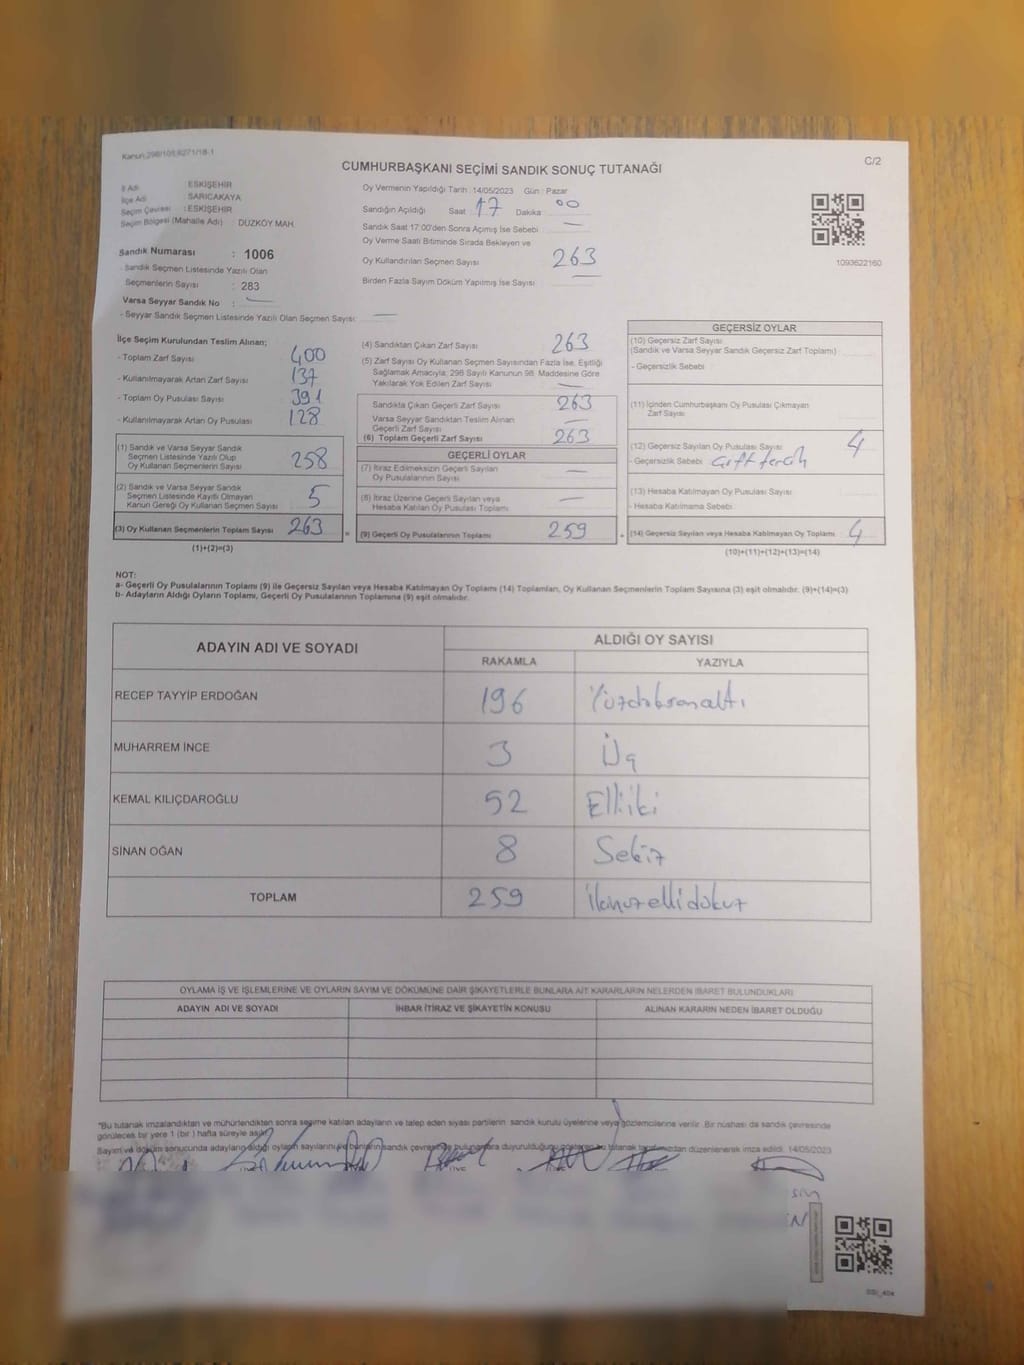 Kanun:298/105,6271/18-1
C/2
CUMHURBAŞKANI SEÇİMİ SANDIK SONUÇ TUTANAĞI
İl Adı : ESKİŞEHİR
İlçe Adı : SARICAKAYA
Seçim Çevresi : ESKİŞEHİR
Seçim Bölgesi (Mahalle Adı) : DÜZKÖY MAH.
Sandık Numarası : 1006
- Sandık Seçmen Listesinde Yazılı Olan
Seçmenlerin Sayısı : 283
Varsa Seyyar Sandık No : —
- Seyyar Sandık Seçmen Listesinde Yazılı Olan Seçmen Sayısı: —
Oy Vermenin Yapıldığı Tarih :14/05/2023 Gün : Pazar
Sandığın Açıldığı Saat 17 Dakika 00
Sandık Saat 17:00'den Sonra Açılmış İse Sebebi —
Oy Verme Saati Bitiminde Sırada Bekleyen ve
Oy Kullandırılan Seçmen Sayısı 263
Birden Fazla Sayım Döküm Yapılmış İse Sayısı —
1093622160
İlçe Seçim Kurulundan Teslim Alınan;
- Toplam Zarf Sayısı 400
- Kullanılmayarak Artan Zarf Sayısı 137
- Toplam Oy Pusulası Sayısı 391
- Kullanılmayarak Artan Oy Pusulası 128
(1) Sandık ve Varsa Seyyar Sandık
Seçmen Listesinde Yazılı Olup
Oy Kullanan Seçmenlerin Sayısı 258
(2) Sandık ve Varsa Seyyar Sandık
Seçmen Listesinde Kayıtlı Olmayan
Kanun Gereği Oy Kullanan Seçmen Sayısı 5
(3) Oy Kullanan Seçmenlerin Toplam Sayısı 263
=
(1)+(2)=(3)
(4) Sandıktan Çıkan Zarf Sayısı 263
(5) Zarf Sayısı Oy Kullanan Seçmen Sayısından Fazla İse, Eşitliği
Sağlamak Amacıyla; 298 Sayılı Kanunun 98. Maddesine Göre
Yakılarak Yok Edilen Zarf Sayısı —
Sandıkta Çıkan Geçerli Zarf Sayısı 263
Varsa Seyyar Sandıktan Teslim Alınan
Geçerli Zarf Sayısı —
(6) Toplam Geçerli Zarf Sayısı 263
GEÇERLİ OYLAR
(7) İtiraz Edilmeksizin Geçerli Sayılan
Oy Pusulasının Sayısı —
(8) İtiraz Üzerine Geçerli Sayılan veya
Hesaba Katılan Oy Pusulası Toplamı —
(9) Geçerli Oy Pusulalarının Toplamı 259
+
GEÇERSİZ OYLAR
(10) Geçersiz Zarf Sayısı
(Sandık ve Varsa Seyyar Sandık Geçersiz Zarf Toplamı)
- Geçersizlik Sebebi
(11) İçinden Cumhurbaşkanı Oy Pusulası Çıkmayan
Zarf Sayısı
(12) Geçersiz Sayılan Oy Pusulası Sayısı 4
- Geçersizlik Sebebi Çift tercih
(13) Hesaba Katılmayan Oy Pusulası Sayısı
- Hesaba Katılmama Sebebi
(14) Geçersiz Sayılan veya Hesaba Katılmayan Oy Toplamı 4
(10)+(11)+(12)+(13)=(14)
NOT:
a- Geçerli Oy Pusulalarının Toplamı (9) ile Geçersiz Sayılan veya Hesaba Katılmayan Oy Toplamı (14) Toplamları, Oy Kullanan Seçmenlerin Toplam Sayısına (3) eşit olmalıdır. (9)+(14)=(3)
b- Adayların Aldığı Oyların Toplamı, Geçerli Oy Pusulalarının Toplamına (9) eşit olmalıdır.
ADAYIN ADI VE SOYADI
ALDIĞI OY SAYISI
RAKAMLA YAZIYLA
RECEP TAYYİP ERDOĞAN 196 Yüzdoksanaltı
MUHARREM İNCE 3 Üç
KEMAL KILIÇDAROĞLU 52 Elliiki
SİNAN OĞAN 8 Sekiz
TOPLAM 259 ikiyüzellidokuz
OYLAMA İŞ VE İŞLEMLERİNE VE OYLARIN SAYIM VE DÖKÜMÜNE DAİR ŞİKAYETLERLE BUNLARA AİT KARARLARIN NELERDEN İBARET BULUNDUKLARI
ADAYIN ADI VE SOYADI İHBAR İTİRAZ VE ŞİKAYETİN KONUSU ALINAN KARARIN NEDEN İBARET OLDUĞU
*Bu tutanak imzalandıktan ve mühürlendikten sonra seçime katılan adayların ve talep eden siyasi partilerin sandık kurulu üyelerine veya gözlemcilerine verilir. Bir nüshası da sandık çevresinde
görülecek bir yere 1 (bir ) hafta süreyle asılır.
Sayım ve döküm sonucunda adayların aldığı oyların sayılarını bunların sandık çevresinde bulunanlara duyurulduğunu gösteren bu tutanak tarafımızdan düzenlenerek imza edildi. 14/05/2023